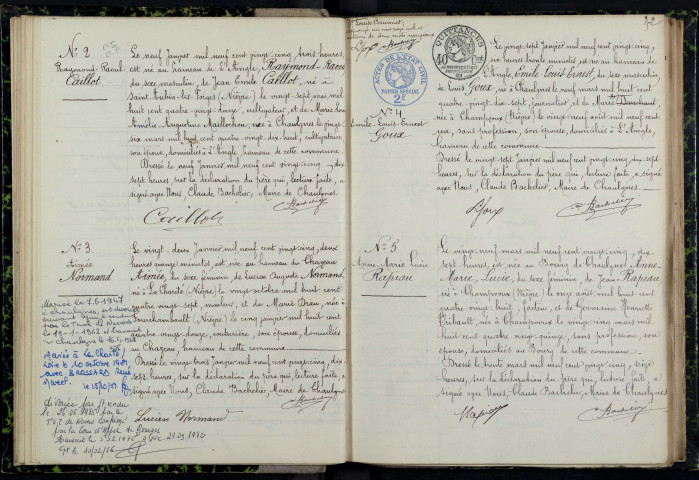 N° 2
Raymond-Raoul
Caillot
Le neuf Janvier mil neuf cent vingt-cinq, trois heures,
est né au hameau de L'Angle, Raymond Raoul
du sexe masculin, de Jean Emile Caillot, né à
Saint-Aubin-les-Forges (Nièvre) le vingt sept mai mil
huit cent quatre vingt douze, cultivateur, et de Marie
Amélie Augustine Maillochon, née à Chaulgnes le vingt
six mars mil huit cent quatre-vingt-dix-huit, cultivatrice
son épouse, domiciliés à L'Angle, hameau de cette commune.
Dressé le neuf Janvier mil neuf cent vingt-cinq, dix
sept heures, sur la déclaration du père qui, lecture faite, a
signé avec Nous, Claude Bachelier, Maire de Chaulgnes.
Caillot
Bachelier
N° 3
Aimée
Normand
Le vingt deux Janvier mil neuf cent vingt-cinq, deux
heures quinze minutes, est née au hameau du Chazeau
Aimée, du sexe féminin, de Lucien Auguste Normand,
né à La Charité (Nièvre) le vingt octobre mil huit cent
quatre vingt sept, mouleur, et de Marie Biau, née à
Fourchambault (Nièvre) le cinq Janvier mil huit cent
quatre-vingt-douze, couturière, son épouse, domiciliés
au Chazeau, hameau de cette commune.
Dressé le vingt trois Janvier mil neuf cent vingt-cinq, dix
sept heures, sur la déclaration du père qui, lecture faite, a
signé avec Nous, Claude Bachelier, Maire de Chaulgnes
Bachelier
Lucien Normand
Mariée à La Charité/
Loire le 10 octobre 1981
avec BROSSARD René
Marcel.
QUITTANCES
40
ACTES DE L'ETAT CIVIL
PAPIER SPECIAL
2F
N° 4
Emile-Louis-Ernest
Goux
Le vingt sept Janvier mil neuf cent vingt-cinq,
est né au hameau de
L'Angle, Emile Louis Ernest, du sexe masculin
de Louis Goux, né à Chaulgnes le neuf Mars mil huit cent
quatre-vingt-dix-sept, journalier, et de Marie
née à Champvoux (Nièvre) le vingt neuf août mil neuf cent
un, sans profession, son épouse, domiciliés à L'Angle,
hameau de cette commune.
Dressé le vingt sept Janvier mil neuf cent vingt-cinq, dix sept
heures, sur la déclaration du père qui, lecture faite, a signé
avec Nous, Claude Bachelier, Maire de Chaulgnes.
Goux
Bachelier
N° 5
Anne-Marie Lucie
Rapeau
Le vingt neuf Mars mil neuf cent vingt-cinq, dix
sept heures, est née au Bourg de Chaulgnes Anne-
Marie-Lucie, du sexe féminin, de Jean Rapeau
né à Champvoux (Nièvre) le onze août mil huit cent
quatre vingt huit, facteur, et de Germaine Henriette
née à Champvoux le vingt cinq mars mil
huit cent quatre vingt quinze, sans profession, son
épouse, domiciliés au Bourg de cette commune.
Dressé le trente Mars mil neuf cent vingt-cinq, seize
heures, sur la déclaration du père qui, lecture faite, a
signé avec Nous, Claude Bachelier, Maire de Chaulgnes
Rapeau
Bachelier